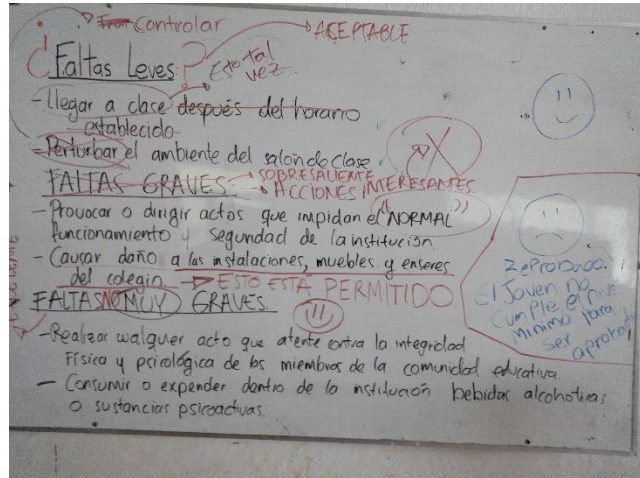 Controlar
ACEPTABLE
¿Faltas Leves?
Esto tal
vez.
- Llegar a clase después del horario
establecido
- Perturbar el ambiente del salón de clase
FALTAS GRAVES SOBRESALIENTE
ACCIONES INTERESANTES
- Provocar o dirigir actos que impidan el "NORMAL"
funcionamiento y seguridad de la institución.
- Causar daño a las instalaciones, muebles y enseres
del colegio. ESTO ESTÁ PERMITIDO
FALTAS NO MUY GRAVES
- Realizar cualquier acto que atente contra la integridad
Física y psicológica de los miembros de la comunidad educativa
- Consumir o expender dentro de la institución bebidas alcoholicas
o sustancias psicoactivas.
ReProbado.
El Joven no
cumple el nivel
minimo para
ser aprobado